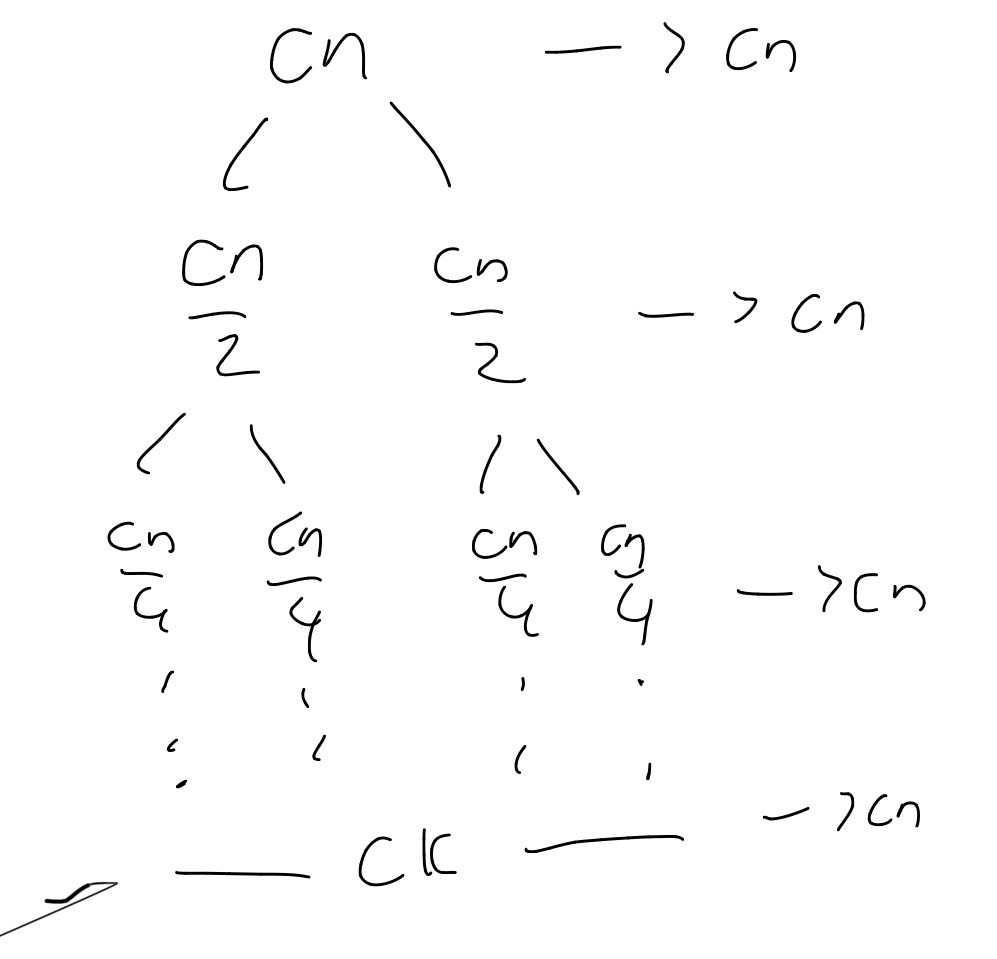 Cn —> Cn
Cn/2 Cn/2 —> Cn
Cn/4 Cn/4 Cn/4 Cn/4 —> Cn
— CK — —> Cn